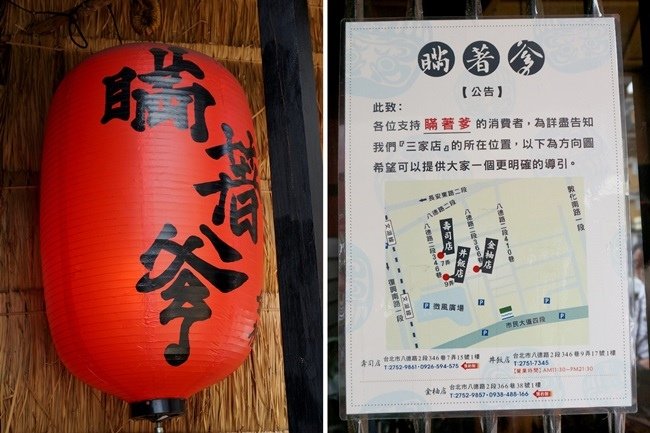 瞞著爹
瞞著爹
【公告】
此致：
各位支持 瞞著爹 的消費者，為詳盡告知
我們『三家店』的所在位置，以下為方向圖
希望可以提供大家一個更明確的導引。
長安東路二段
八德路二段
敦化南路一段
八德路二段346巷
八德路二段366巷
八德路二段410巷
壽司店
丼飯店
金釉店
7弄
9弄
復興南路一段
P
微風廣場
P
P
市民大道四段
P
壽司店 台北市八德路2段346巷7弄15號1樓
T:2752-9861·0926-594-575
丼飯店 台北市八德路2段346巷9弄17號1樓
T:2751-7345
【營業時間】AM11:30~PM21:30
金釉店 台北市八德路2段366巷38號1樓
T:2752-9857·0938-488-166